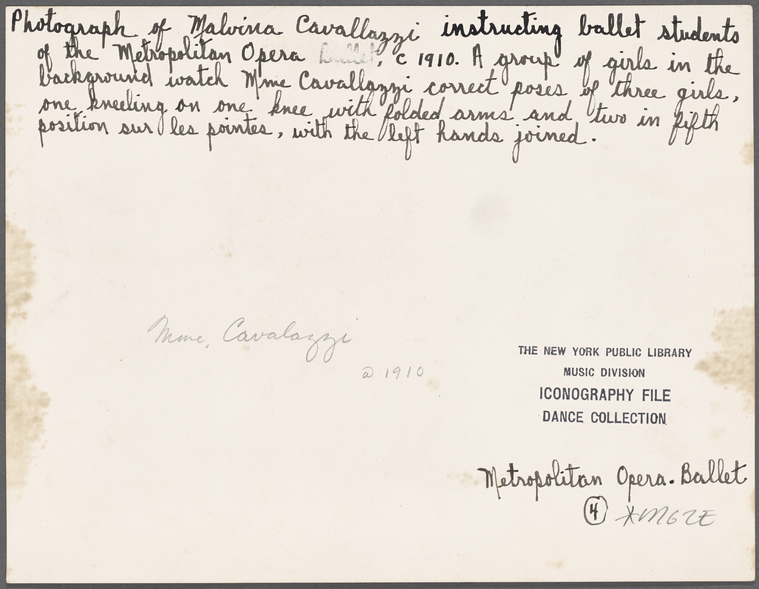 Photograph of Malvina Cavallazzi instructing ballet students
of the Metropolitan Opera Ballet, c 1910. A group of girls in the
background watch Mme Cavallazzi correct poses of three girls,
one kneeling on one knee with folded arms and two in fifth
position sur les pointes, with the left hands joined.
Mme. Cavalazzi
a 1910
THE NEW YORK PUBLIC LIBRARY
MUSIC DIVISION
ICONOGRAPHY FILE
DANCE COLLECTION
Metropolitan Opera. Ballet
4 *MGZE